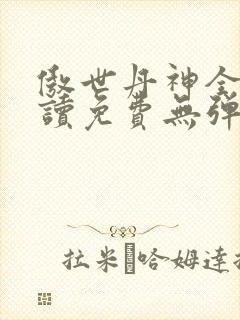 傲世丹神全
讀免費無彈
拉米哈姆達